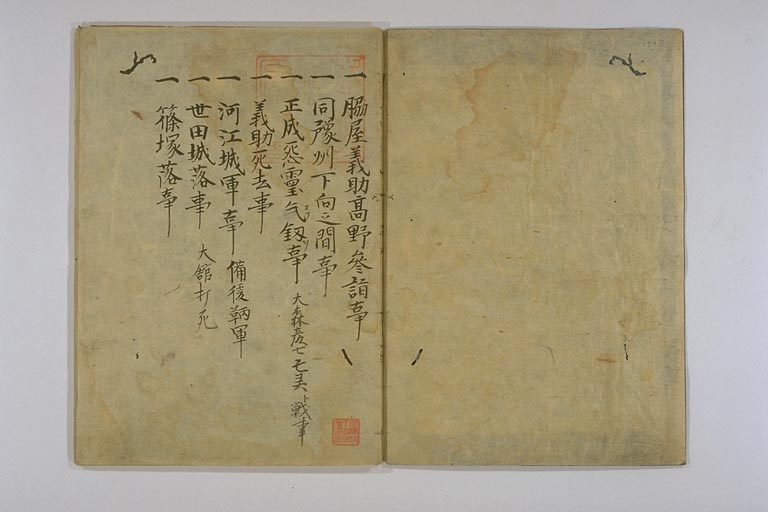 一 脇屋義助高野参詣事
一 同豫州下向之間事
一 正成怨霊乞釼事 大森彦七 戦事
一 義助死去事
一 河江城軍事 備後鞆軍
一 世田城落事 大舘打死
一 篠塚落事